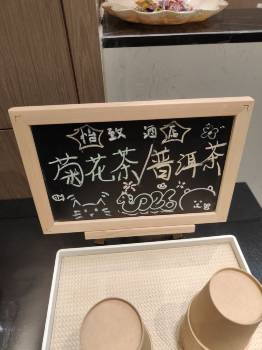 怡致酒店
菊花茶/普洱茶